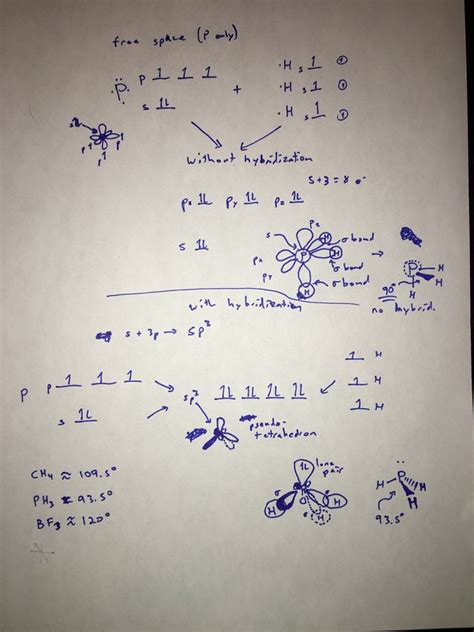 free space (P only)
P P 1 1 1 + ·H s 1 ①
s 1L ·H s 1 ②
·H s 1 ③
s
P1 P1 P1
without hybridization
5+3 = 8 e-
Px 1L Py 1L Pz 1L
s 1L
s Pz
Px P H H σ bond
Py σ bond
H σ bond
P H H H
90°
no hybrid.
with hybridization
s + 3p → sp3
P P 1 1 1
s 1L
sp3 1L 1L 1L 1L
1 H
1 H
1 H
pseudo-
tetrahedron
CH4 ≈ 109.5°
PH3 ≈ 93.5°
BF3 ≈ 120°
1L lone
pair
σ σ σ
H H H
H P H H
93.5°